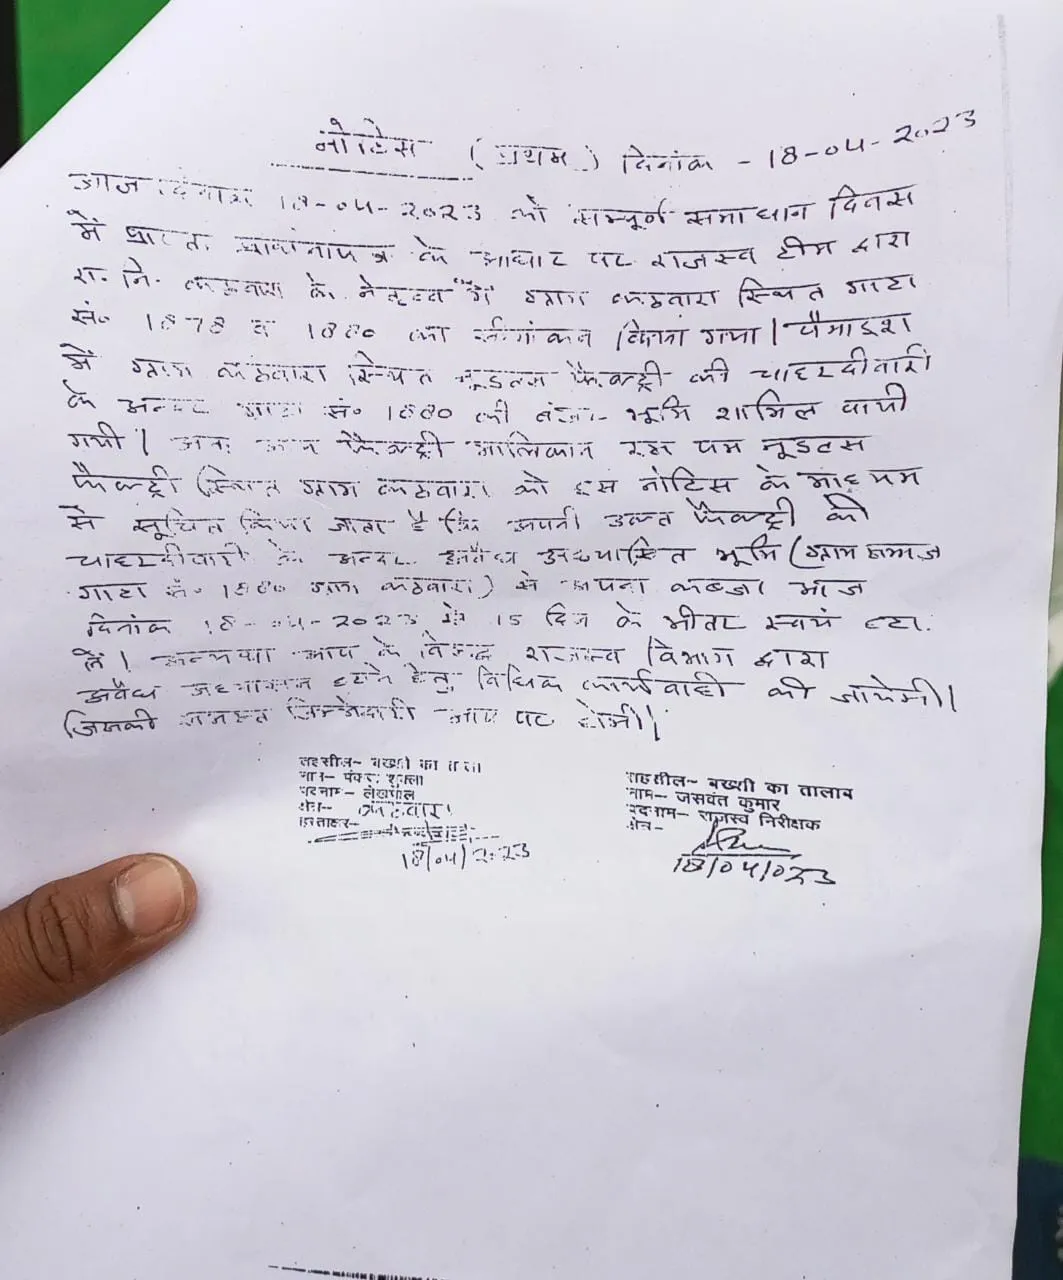 नोटिस (प्रथम) दिनांक - 18-04-2023
आज दिनांक 18-04-2023 को सम्पूर्ण समाधान दिवस
में प्राप्त प्रार्थनापत्र के आधार पर राजस्व टीम द्वारा
रा. नि. कठवारा के नेतृत्व में ग्राम कठवारा स्थित गाटा
सं० 1878 व 1880 का सीमांकन किया गया। पैमाइश
में ग्राम कठवारा स्थित नूडल्स फैक्ट्री की चाहरदीवारी
के अन्दर गाटा सं० 1880 की बंजर भूमि शामिल पायी
गयी। अतः आप फैक्ट्री मालिकान एम एम नूडल्स
फैक्ट्री स्थित ग्राम कठवारा को इस नोटिस के माध्यम
से सूचित किया जाता है कि अपनी उक्त फैक्ट्री की
चाहरदीवारी के अन्दर अवैध अध्यासित भूमि (ग्राम समाज
गाटा सं. 1880 ग्राम कठवारा) से अपना कब्जा आज
दिनांक 18-04-2023 से 15 दिन के भीतर स्वयं हटा
लें। अन्यथा आप के विरुद्ध राजस्व विभाग द्वारा
अवैध अध्यासन हटाने हेतु विधिक कार्यवाही की जायेगी।
जिसकी समस्त जिम्मेदारी आप पर होगी।
तहसील- बख्शी का तालाब
नाम- पंकज शुक्ला
पदनाम- लेखपाल
क्षेत्र- कठवारा
हस्ताक्षर-
18/04/2023
तहसील- बख्शी का तालाब
नाम- जसवंत कुमार
पदनाम- राजस्व निरीक्षक
क्षेत्र-
18/04/023